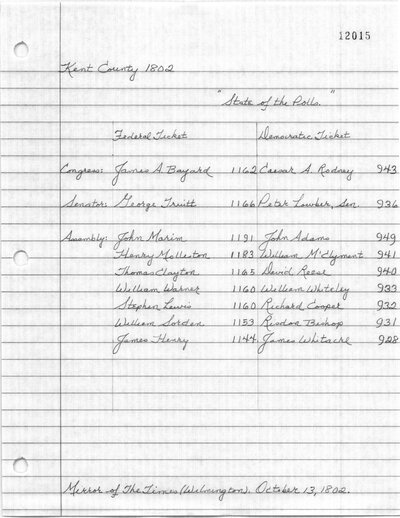 12015
Kent County 1802
"State of the Polls."
Federal Ticket Democratic Ticket
Congress: James A. Bayard 1162 Caesar A. Rodney 943
Senator: George Truitt 1166 Peter Lowber, Sen. 936
Assembly: John Marim 1191 John Adams 949
Henry Molleston 1183 William McClyment 941
Thomas Clayton 1165 David Rees 940
William Warner 1160 William Whiteley 933
Stephen Lewis 1160 Richard Cooper 932
William Sorden 1153 Risdon Bishop 931
James Henry 1144 James Whitacre 928
Mirror of The Times (Wilmington). October 13, 1802.